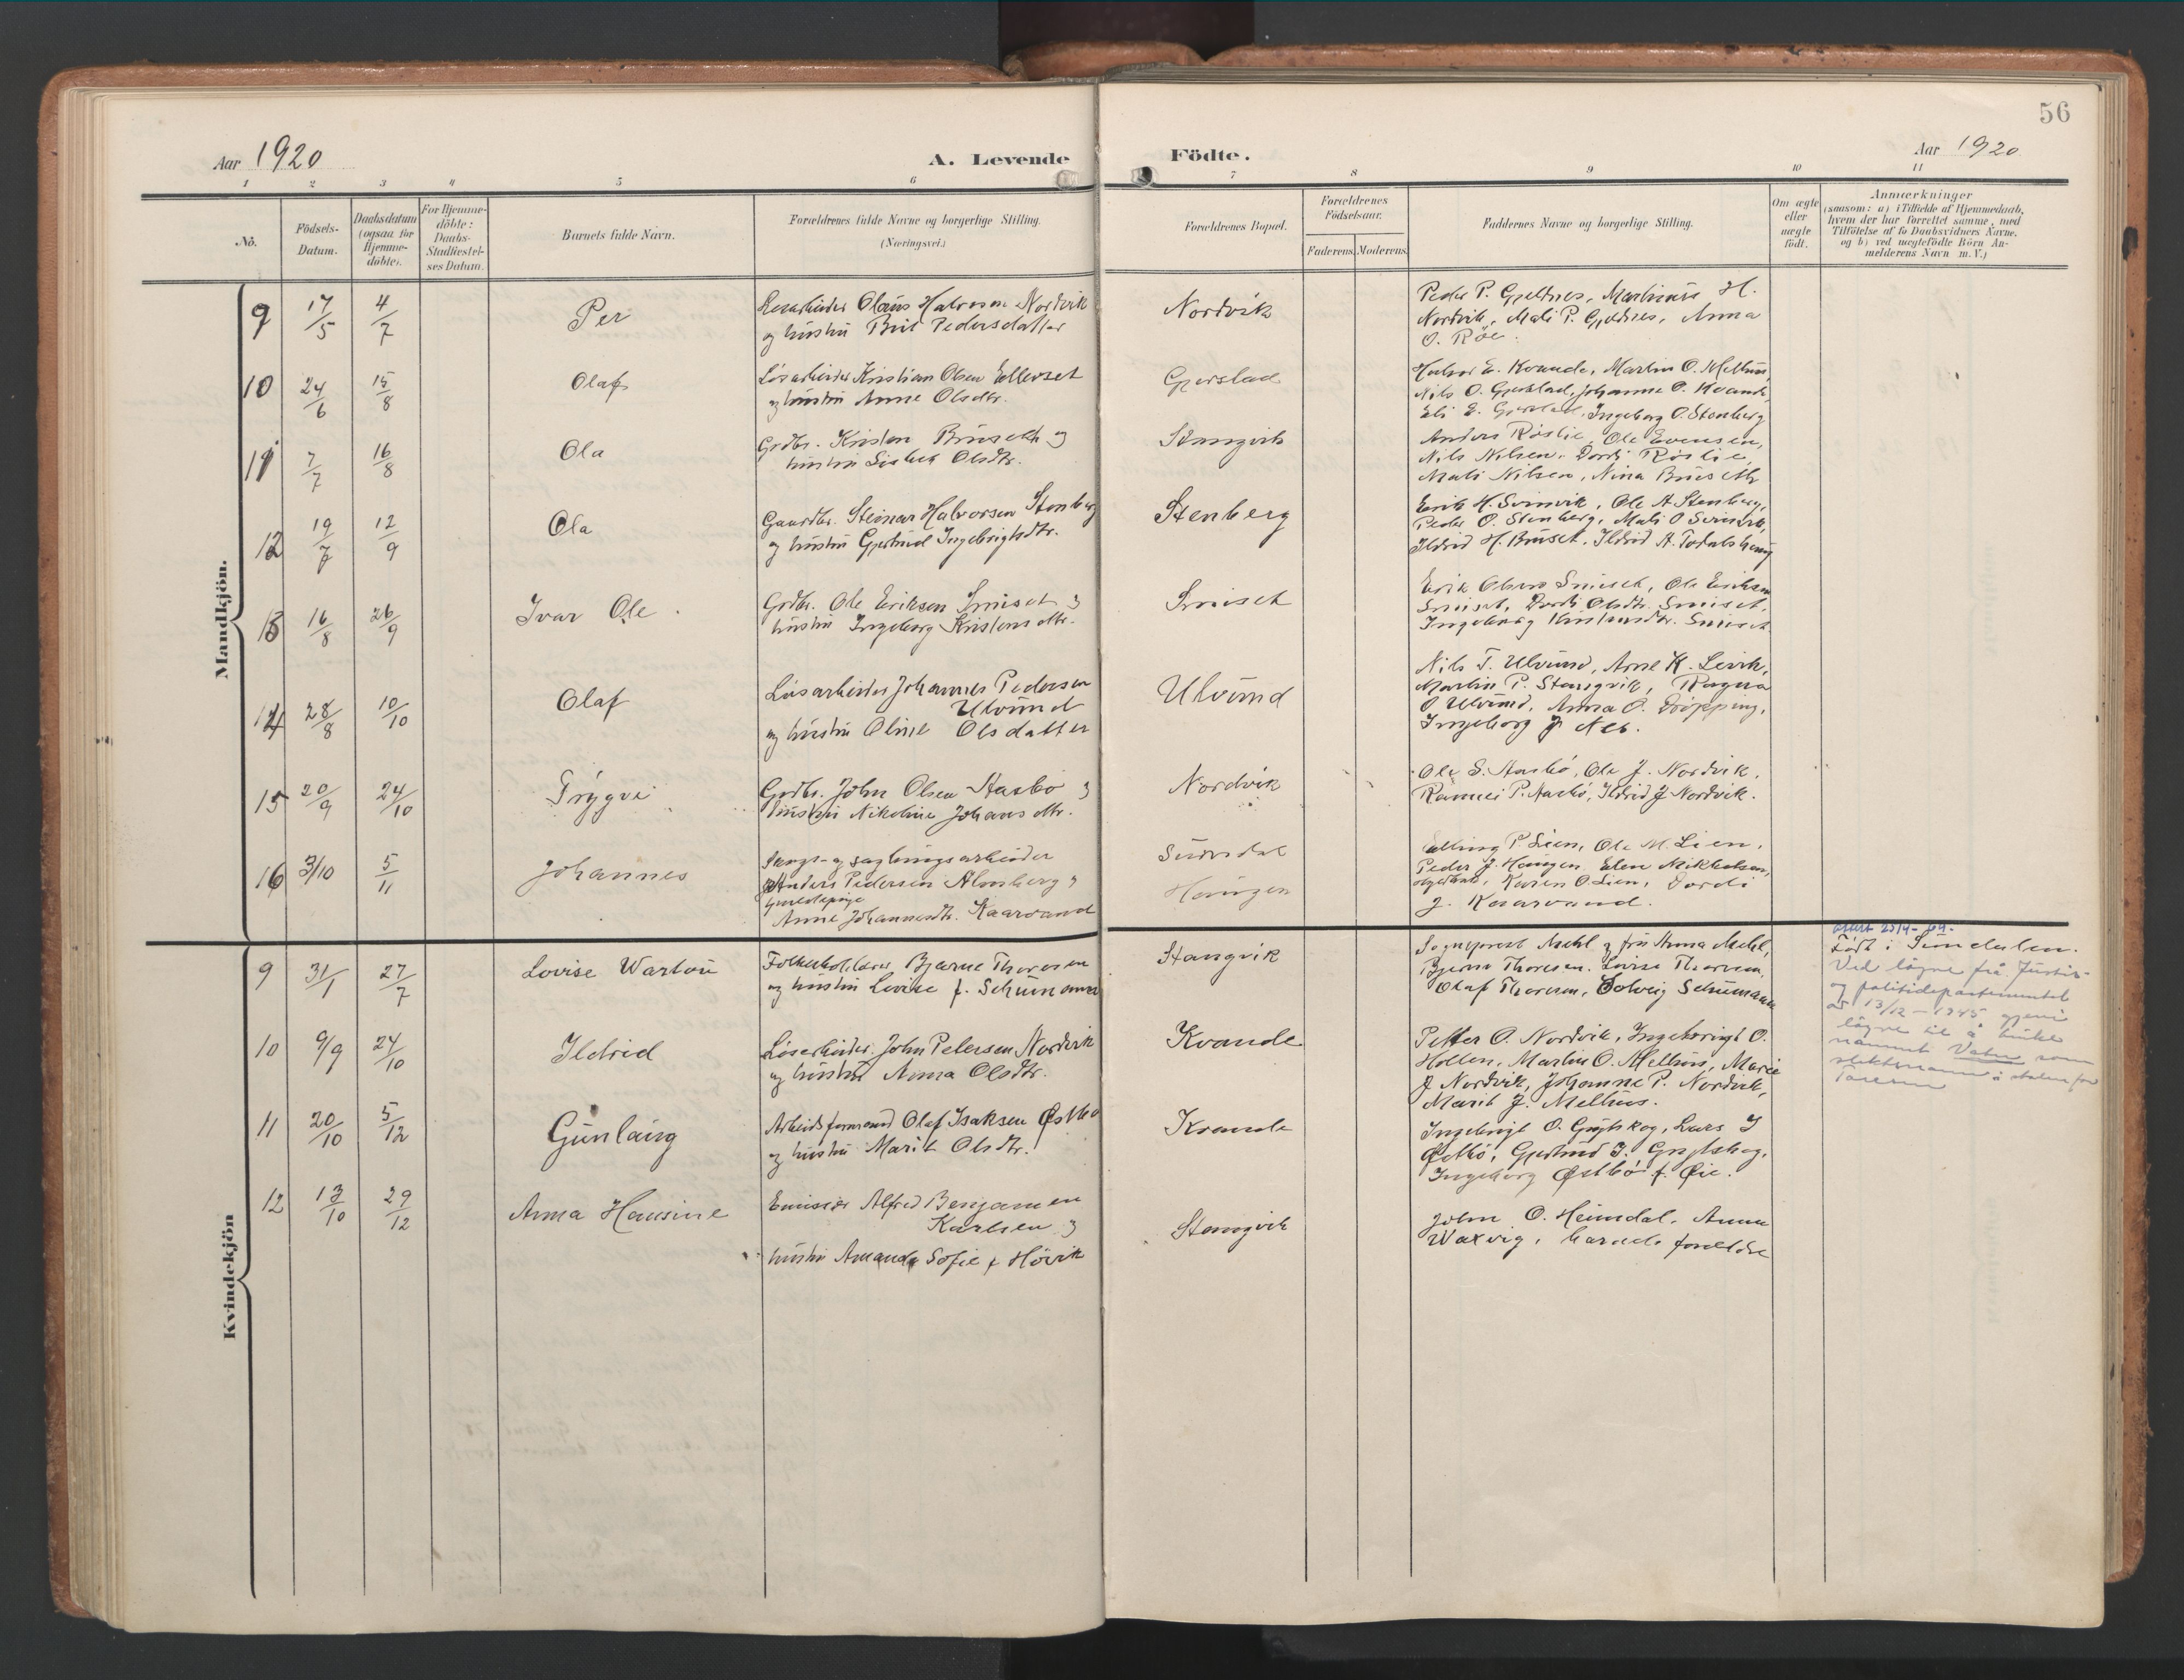 56
Aar 1920
A. Levende
Födte.
Aar 1920
1 2 3 4 5 6 7 8 9 10 11
No.
Födsels-
Datum.
Daabsdatum
(ogsaa for
Hjemme-
döbte).
For Hjemme-
döbte:
Daabs-
Stadfæstel-
ses Datum.
Barnets fulde Navn.
Forældrenes fulde Navne og borgerlige Stilling.
(Næringsvei.)
Forældrenes Bopæl.
Forældrenes
Födselsaar.
Faderens. Moderens.
Faddernes Navne og borgerlige Stilling.
Om ægte
eller
uægte
födt.
Anmærkninger
(saasom: a) i Tilfælde af Hjemmedaab,
hvem der har forrettet samme, med
Tilföielse af to Daabsvidners Navne,
og b) ved uægtefödte Börn An-
melderens Navn m. V.)
Mandkjön.
9 17/5 4/7 Per
Olaus Halvorsen Nordvik
og hustru Brit Pedersdatter
Nordvik
Peder P. Gjeldnes, Martinus H.
Nordvik, Mali P. Gjeldnes, Anna
O. Röe.
10 24/6 15/8 Olaf
Lösarbeider Kristian Olsen Ellevset
og hustru Anne Olsdtr.
Gjerstad
Halvor E. Kvande, Martin O. Melhus,
Nils O. Gjerstad, Johanne O. Kvande,
Eli E. Gjerstad, Ingeborg O. Stenberg
11 7/7 16/8 Ola
Grdbr. Kristen Bruseth og
hustru Lisbet Olsdtr.
Stangvik
Anders Röslie, Ole Evensen,
Nils Nilsen, Dordi Röslie,
Mali Nilsen, Nina Bruseth
12 19/7 12/9 Ola
Gaardbr. Steinar Halvorsen Stenberg
og hustru Gjertrud Ingebrigtsdtr.
Stenberg
Erik H. Svinvik, Ole A. Stenberg,
Peder O. Stenberg, Mali O Svinvik,
Ildrid H. Bruset, Ildrid A.
13 16/8 26/9 Ivar Ole
Grdbr. Ole Eriksen Smiset og
hustru Ingeborg Kristensdtr.
Smiset
Erik Olsen Smiset, Ole Eriksen
Smiset, Dordi Olsdtr. Smiset,
Ingeborg Kristensdtr. Smiset
14 28/8 10/10 Olaf
Lösarbeider Johannes Pedersen
Ulvund
og hustru Oline Olsdatter
Ulvund
Nils T. Ulvund, Arne K. Lervik,
Martin P. Stangvik, Ragna
O Ulvund, Anna O. Dröpping,
Ingeborg J. Nes.
15 20/9 24/10 Trygve
Grdbr. John Olsen Aasbö og
hustru Nikoline Johansdtr.
Nordvik
Ole S. Aasbö, Ole J. Nordvik,
P. Aasbö, Ildrid J Nordvik.
16 3/10 5/11 Johannes
og sagbrugsarbeider
Anders Pedersen Almberg og
Anne Johannesdtr. Kaarvand
Surndal
Haugen
Elling P. Lien, Ole M. Lien,
Peder J. Haugen, Elen Mikkelsen,
Karen O. Lien, Dordi
J. Kaarvand.
Kvindekjön
9 31/1 27/7 Lovise Warloü
Folkehöilærer Bjarne Thoresen
og hustru Lovise f. Schumann
Stangvik
Sogneprest Mehl og fru Anna Mehl,
Bjarne Thoresen, Lovise Thoresen,
Olaf Thoresen, Solveig Schumann
Attest 25/4-64.
Födt i Sundalen.
Ved löyve frå Justis-
og politidepartementet
av 13/12-1945 gjeve
löyve til å bruke
namnet Vatn som
slektsnamn i staden for
Toresen
10 9/9 24/10 Ildrid
Lösarbeider John Petersen Nordvik
og hustru Anna Olsdtr.
Kvande
Petter O. Nordvik, Ingebrigt O.
Holten, Martin O. Melhus, Marie
J Nordvik, Johanne P. Nordvik,
Marit J. Melhus.
11 20/10 5/12 Gunlaug
Arbeidsformand Olaf Isaksen Østbö
og hustru Marit Olsdtr.
Kvande
Ingebrigt O. Grytskog, Lars I
Østbö, Gjertrud I. Grytskog,
Ingeborg Østbö f. Øie.
12 13/10 29/12 Anna Hansine
Emissær Alfred Benjamen
Karlsen og
hustru Amanda Sofie f Hövik
Stangvik
John O. Heimdal, Anna
Waxvig, barnets forældre